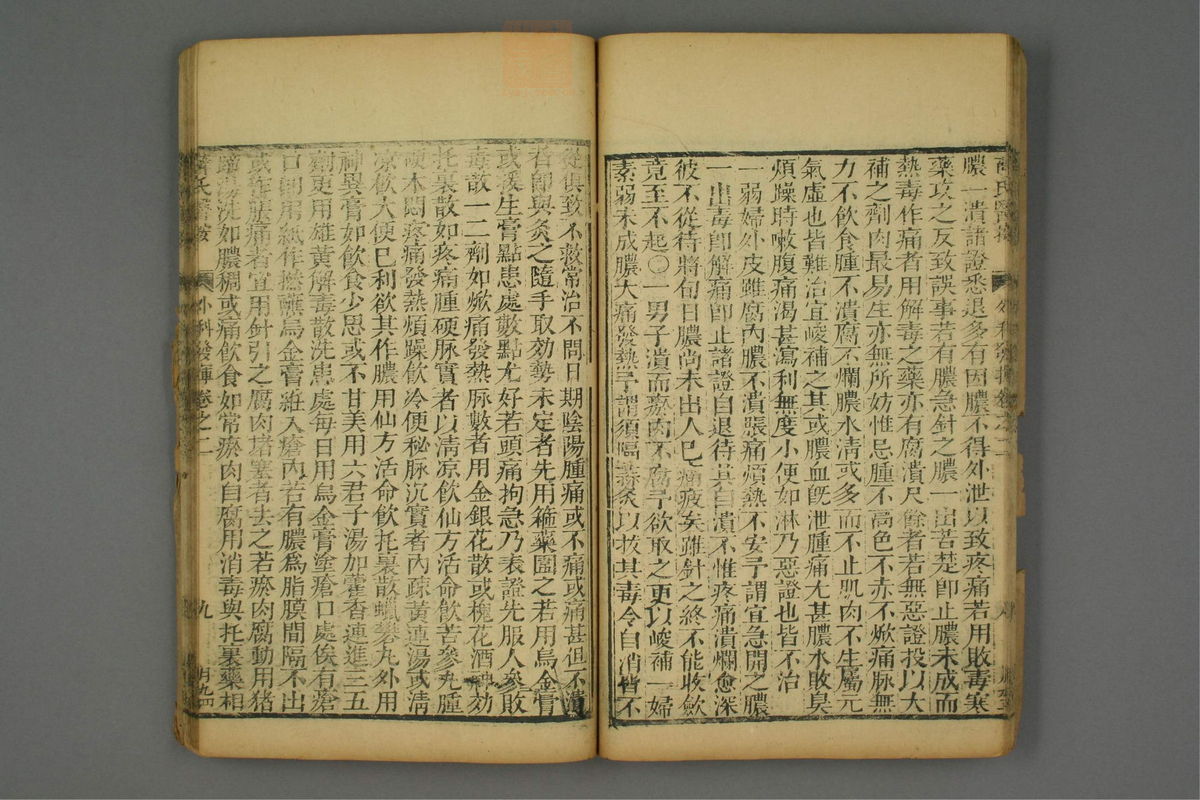 膿一潰諸證悉退多有因膿不得外泄以致疼痛若用敗毒寒
藥攻之反致誤事若有膿急針之膿一出苦楚卽止膿未成而
熱毒作痛者用解毒之藥亦有腐潰尺餘者若無惡證投以大
補之劑肉最易生亦無所妨惟忌腫不高色不赤不焮痛脉無
力不飲食腫不潰腐不爛膿水清或多而不止肌肉不生屬元
氣虛也皆難治宜峻補之其或膿血旣泄腫痛尤甚膿水敗臭
煩躁時嗽腹痛渴甚瀉利無度小便如淋乃惡證也皆不治
一弱婦外皮雖腐內膿不潰脹痛煩熱不安予謂宜急開之膿
一出毒卽解痛卽止諸證自退待其自潰不惟疼痛潰爛愈深
彼不從待將旬日膿尚未出人已痛疲矣雖針之終不能收斂
竟至不起〇一男子潰而瘀肉不腐予欲取之更以峻補一婦
素弱未成膿大痛發熱予謂須隔蒜灸以拔其毒令自消皆不
從俱致不救常治不問日期陰陽腫痛或不痛或痛甚但不潰
者卽與灸之隨手取効勢未定者先用箍藥圍之若用烏金膏
或援生膏點患處數點尤好若頭痛拘急乃表證先服人參敗
毒散一二劑如焮痛發熱脉數者用金銀花散或槐花酒神効
托裏散如疼痛腫硬脉實者以淸凉飲仙方活命飲苦參丸腫
硬木悶疼痛發熱煩躁飲冷便秘脉沉實者內疎黃連湯或淸
凉飲大便已利欲其作膿用仙方活命飲托裏散蠟礬丸外用
神異膏如飲食少思或不甘美用六君子湯加藿香連進三五
劑更用雄黃解毒散洗患處每日用烏金膏塗瘡口處俟有瘡
口卽用紙作撚蘸烏金膏絍入瘡內若有膿爲脂膜間隔不出
或作脹痛者宜用針引之腐肉堵塞者去之若瘀肉腐動用猪
蹄湯洗如膿稠或痛飲食如常瘀肉自腐用消毒與托裏藥相
薛氏醫按
外科發揮卷之二
九